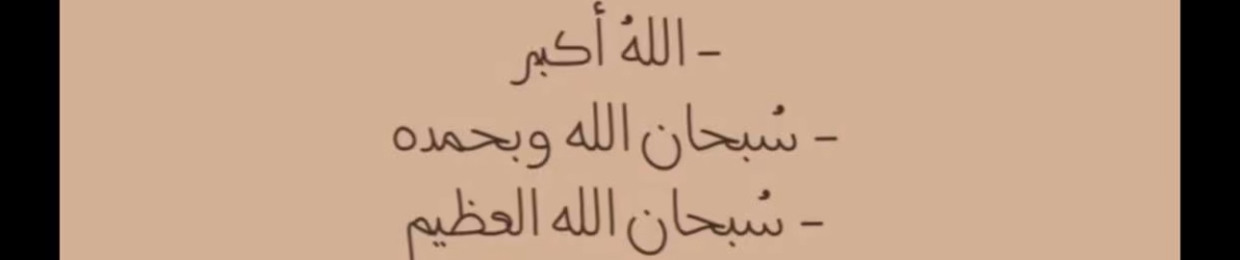 - اللهُ أكبر
- سُبحان الله وبحمده
- سُبحان الله العظيم